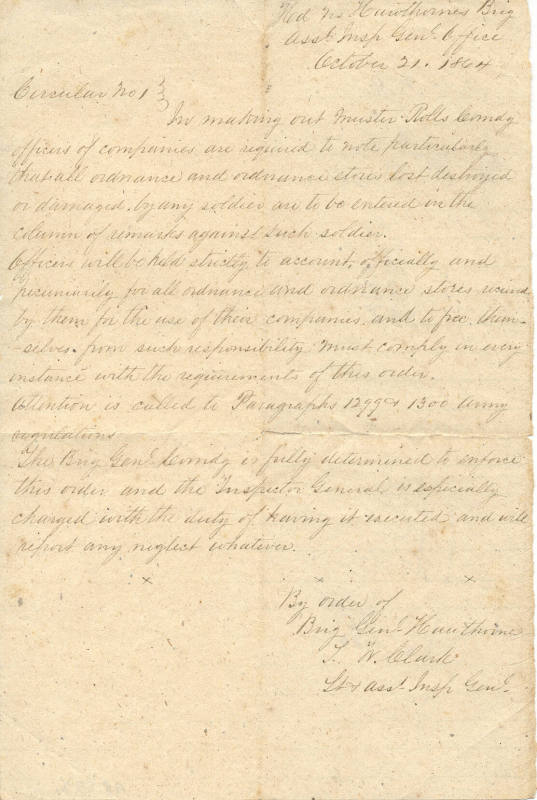 Hd Qrs Hawthornes Brig
Asst Insp Genl Office
October 21. 1864
Circular No 1
In making out Muster Rolls Comdg
officers of companies are required to note particularly
that all ordnance and ordnance stores lost destroyed
or damaged by any soldier are to be entered in the
column of remarks against such soldier.
Officers will be held strictly to account, officially and
pecuniarily for all ordnance and ordnance stores received
by them for the use of their companies. and to free them-
-selves. from such responsibility must comply in every
instance with the requirements of this order.
Attention is called to Paragraphs 1299 & 1300 Army
regulations
The Brig Genl Comdg is fully determined to enforce
this order and the Inspector General is especially
charged with the duty of having it executed and will
report any neglect whatever.
x x x
By order of
Brig Genl Hawthorne
T. W. Clark
Lt & Asst Insp Genl.